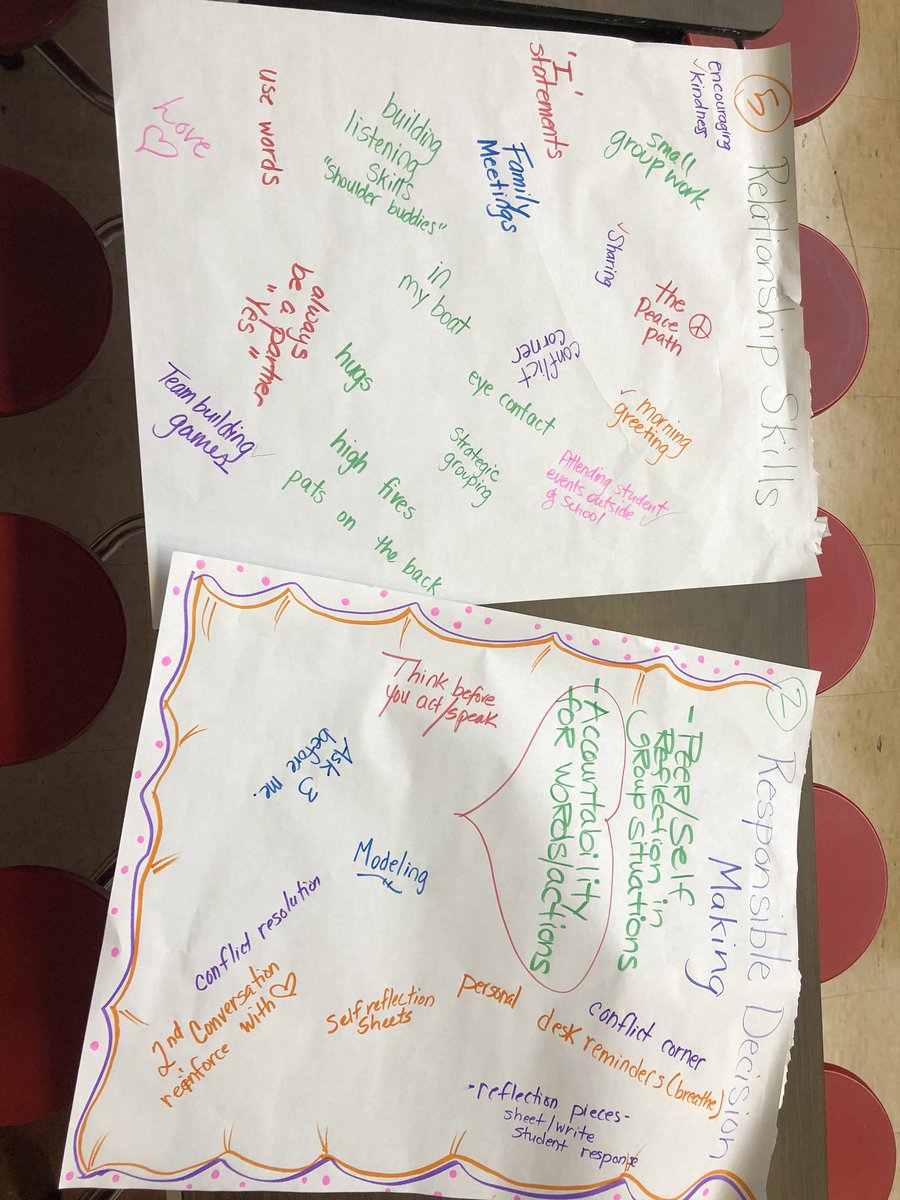 5 Relationship Skills
encouraging
✓kindness
small
group work
"I"
statements
Family
Meetings
building
listening
skills
"shoulder buddies"
use words
Love
✓ Sharing
the
Peace
path
in
my boat
conflict
corner
✓ morning
greeting
eye contact
hugs
always
be a partner
"yes"
Team building
games
Strategic
grouping
Attending student
events outside
of school
high fives
pats on the back
2 Responsible Decision
Making
- Peer/Self
Reflection in
Group situations
- Accountability
for words/actions
Think before
you act/speak
Ask 3
before me.
Modeling
conflict resolution
2nd Conversation
reinforce with
Self reflection
sheets
personal
desk reminders (breathe)
conflict corner
- reflection pieces -
sheet/write
student response